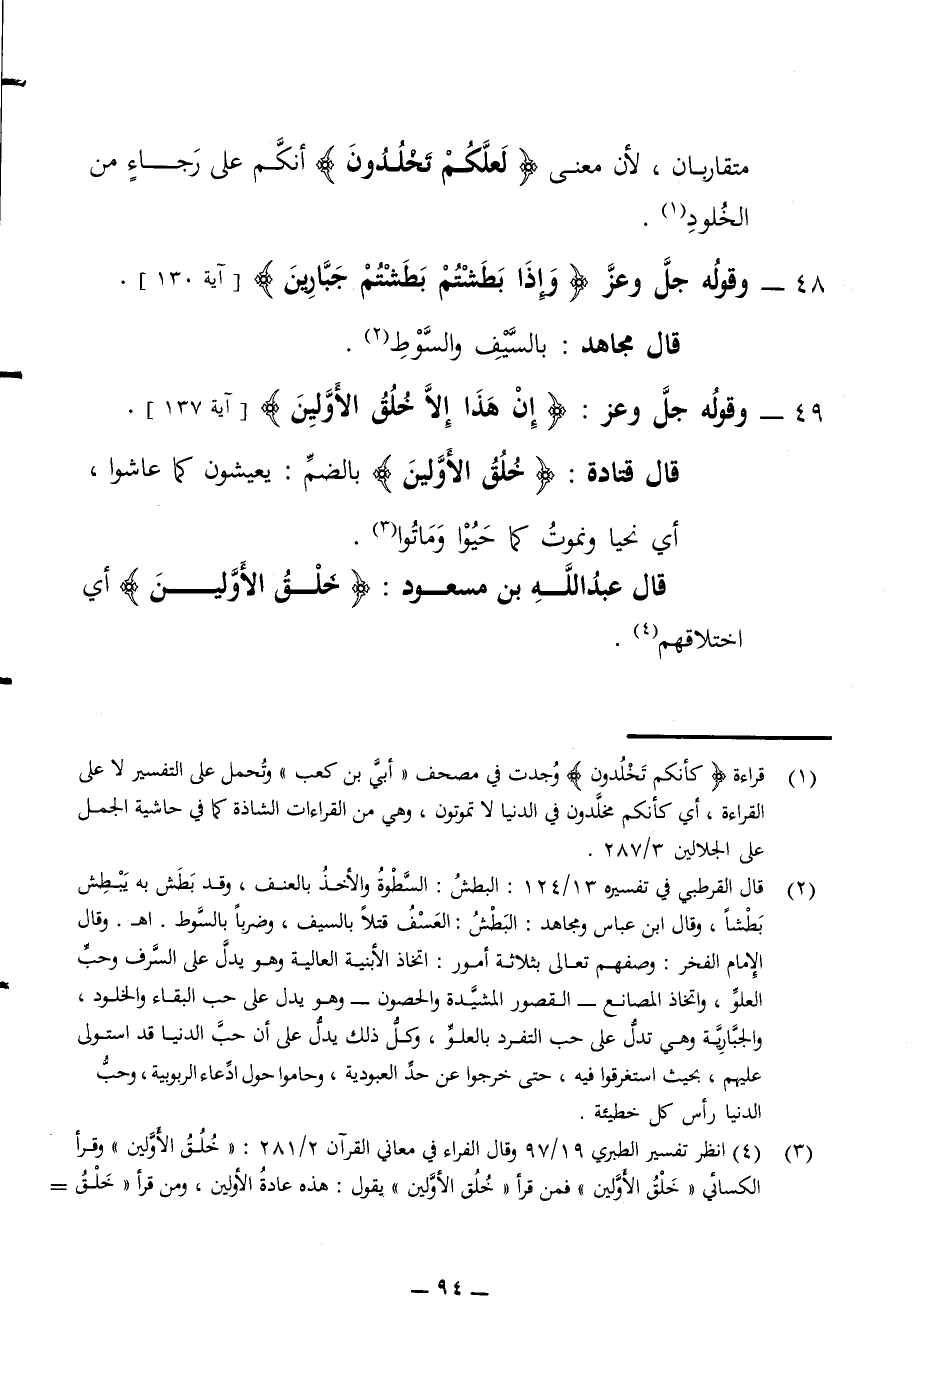 متقاربـان ، لأن معنـى ﴿ لَعلَّكُمْ تَخْلُـدُونَ ﴾ أنكَّـم على رَجَـــاءٍ من
الخُلودِ(١) .
٤٨ ـ وقولُه جلَّ وعزَّ ﴿ وَإِذَا بَطَشْتُمْ بَطَشْتُمْ جَبَّارِينَ ﴾ [ آية ١٣٠ ] .
قال مجاهد : بالسَّيْفِ والسَّوْطِ(٢) .
٤٩ ـ وقولُه جلَّ وعز : ﴿ إِنْ هَذَا إِلاَّ خُلُقُ الأَوَّلِينَ ﴾ [ آية ١٣٧ ] .
قال قتادة : ﴿ خُلُقُ الأَوَّلينَ ﴾ بالضمِّ : يعيشون كما عاشوا ،
أي نحيا ونموتُ كما حَيُوْا وَمَاتُوا(٣) .
قال عبدُاللَّـــهِ بن مسعـــود : ﴿ خَلْـــقُ الأَوَّليـــــنَ ﴾ أي
اختلاقهم(٤) .
(١) قراءة ﴿ كأنكم تَخْلُدون ﴾ وُجدت في مصحف « أبيَّ بن كعب » وتُحمل على التفسير لا على
القراءة ، أي كأنكم مخلَّدون في الدنيا لا تموتون ، وهي من القراءات الشاذة كما في حاشية الجمل
على الجلالين ٢٨٧/٣ .
(٢) قال القرطبي في تفسيره ١٢٤/١٣ : البطشُ : السَّطْوةُ والأخـذُ بالعنـف ، وقـد بَطَش به يَبْـطِش
بَطْشاً ، وقال ابن عباس ومجاهد : البَطْشُ : العَسْفُ قتلاً بالسيف ، وضرباً بالسَّوط . اهـ . وقال
الإمام الفخر : وصفهـم تعالى بثلاثـة أمـور : اتخاذ الأبنيـة العاليـة وهـو يدلَّ على السَّرف وحبِّ
العلوِّ ، واتخاذ المصانـع ـ القصور المشيَّـدة والحصون ـ وهـو يدل على حب البقـاء والخلـود ،
والجبَّاريَّـة وهـي تدلُّ على حب التفـرد بالعلـوِّ ، وكـلُّ ذلك يدلُّ على أن حبَّ الدنيـا قد استـولى
عليهم ، بحيث استغرقوا فيه ، حتى خرجوا عن حدِّ العبودية ، وحاموا حول ادِّعاء الربوبية ، وحبُّ
الدنيا رأس كل خطيئة .
(٣) (٤) انظر تفسير الطبري ٩٧/١٩ وقال الفراء في معاني القرآن ٢٨١/٢ : « خُلُـقُ الأوَّلين » وقـرأ
الكسائي « خَلْقُ الأوَّلين » فمن قرأ « خُلُق الأوَّلين » يقول : هذه عادةُ الأولين ، ومن قرأ « خَلْـقُ =
ـ ٩٤ ـ